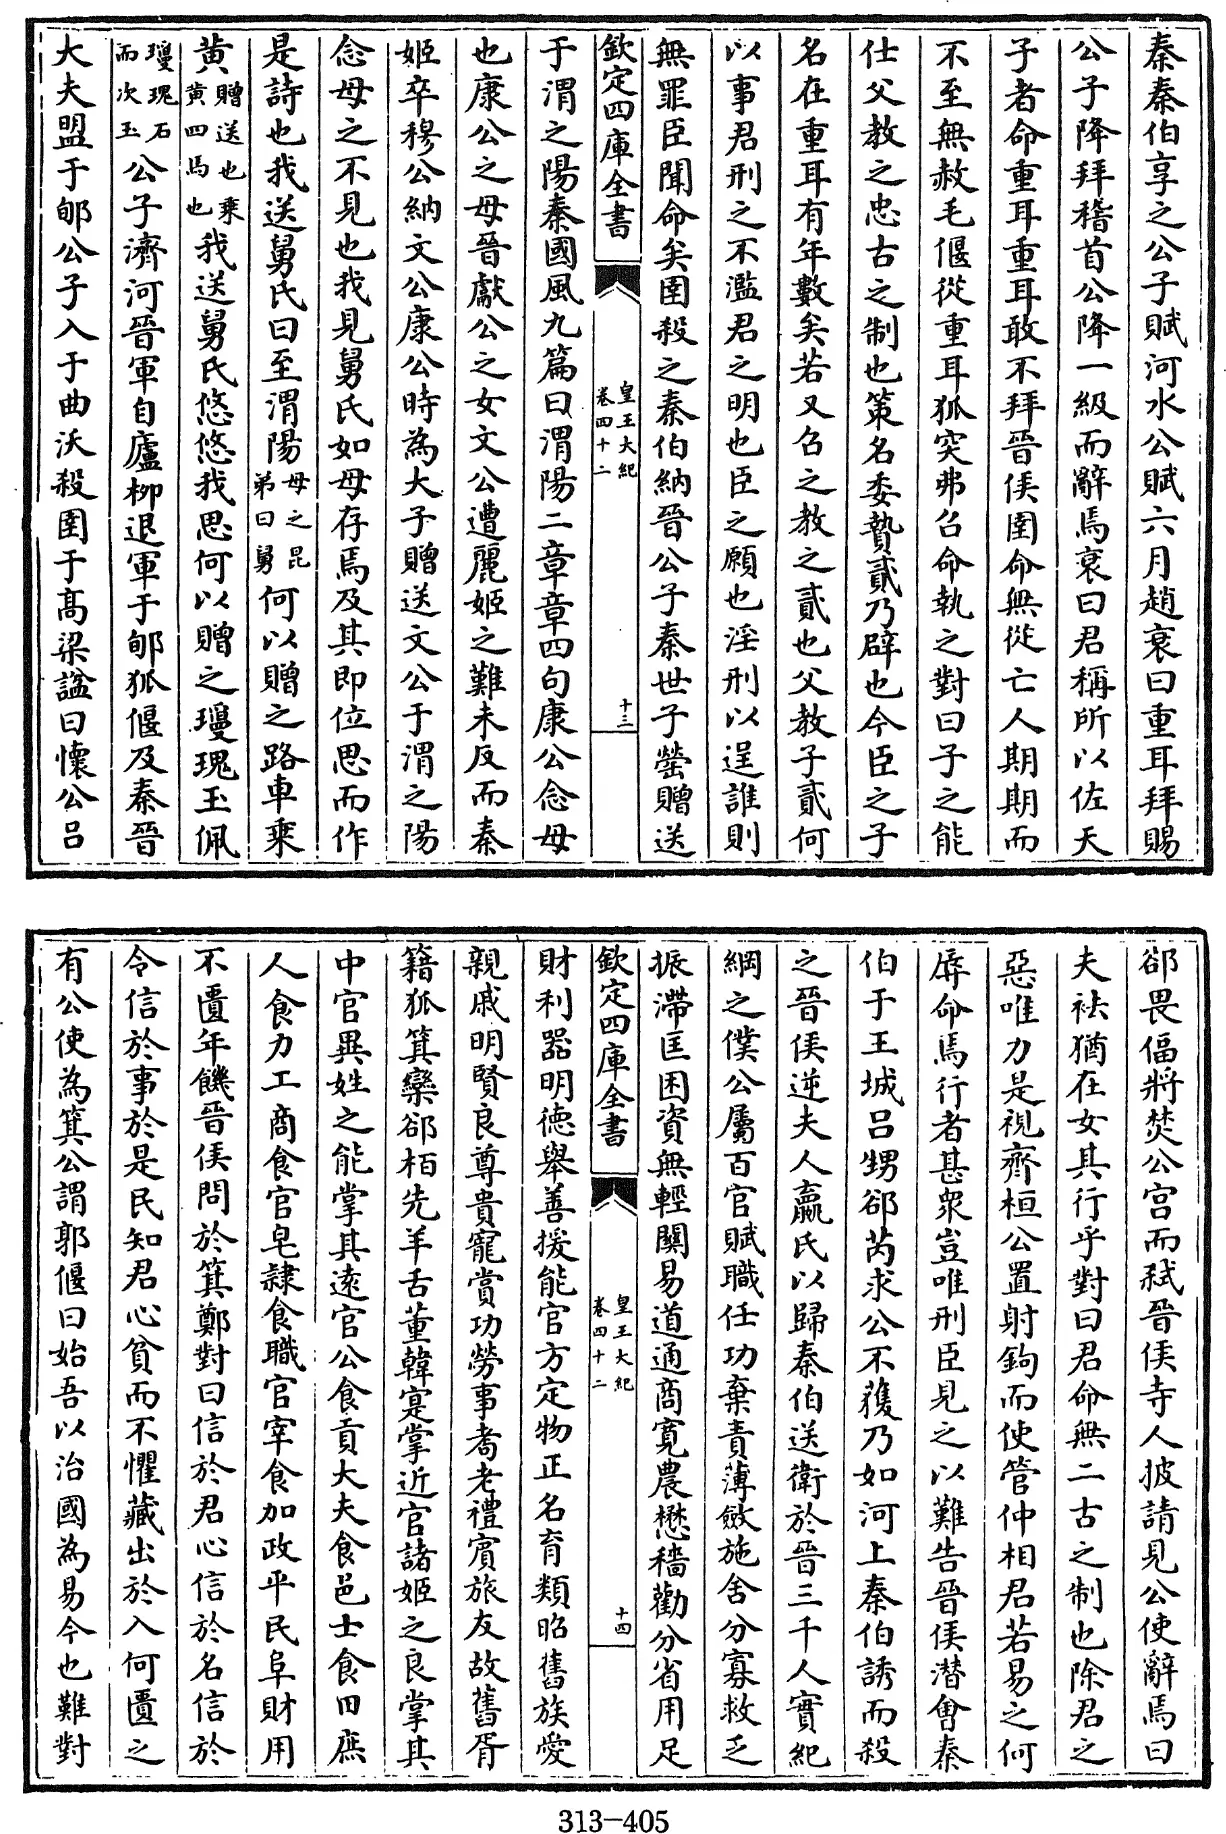 秦秦伯享之公子賦河水公賦六月趙衰曰重耳拜賜
公子降拜稽首公降一級而辭焉衰曰君稱所以佐天
子者命重耳重耳敢不拜晉侯圉命無從亡人期期而
不至無赦毛偃從重耳狐突弗召命執之對曰子之能
仕父教之忠古之制也策名委贄貳乃辟也今臣之子
名在重耳有年數矣若又召之教之貳也父教子貳何
以事君刑之不濫君之明也臣之願也淫刑以逞誰則
無罪臣聞命矣圉殺之秦伯納晉公子秦世子罃贈送
欽定四庫全書
皇王大紀
卷四十二
十三
于渭之陽秦國風九篇曰渭陽二章章四句康公念母
也康公之母晉獻公之女文公遭麗姬之難未反而秦
姬卒穆公納文公康公時為大子贈送文公于渭之陽
念母之不見也我見舅氏如母存焉及其即位思而作
是詩也我送舅氏曰至渭陽母之昆弟曰舅何以贈之路車乘
黄贈送也乘黄四馬也我送舅氏悠悠我思何以贈之瓊瑰玉佩
瓊瑰石而次玉公子濟河晉軍自廬柳退軍于郇狐偃及秦晉
大夫盟于郇公子入于曲沃殺圉于高梁諡曰懷公吕
郤畏偪將焚公宫而弑晉侯寺人披請見公使辭焉曰
夫袪猶在女其行乎對曰君命無二古之制也除君之
惡唯力是視齊桓公置射鉤而使管仲相君若易之何
辱命焉行者甚衆豈唯刑臣見之以難告晉侯潜會秦
伯于王城吕甥郤芮求公不獲乃如河上秦伯誘而殺
之晉侯逆夫人嬴氏以歸秦伯送衛於晉三千人實紀
綱之僕公屬百官賦職任功棄責薄斂施舍分寡救乏
振滯匡困資無輕關易道通商寛農懋穡勸分省用足
欽定四庫全書
皇王大紀
卷四十二
十四
財利器明德舉善援能官方定物正名育類昭舊族愛
親戚明賢良尊貴寵賞功勞事耇老禮賓旅友故舊胥
籍狐箕欒郤栢先羊舌董韓寔掌近官諸姬之良掌其
中官異姓之能掌其遠官公食貢大夫食邑士食田庶
人食力工商食官皂隷食職官宰食加政平民阜財用
不匱年饑晉侯問於箕鄭對曰信於君心信於名信於
令信於事於是民知君心貧而不懼藏出於入何匱之
有公使為箕公謂郭偃曰始吾以治國為易今也難對
313-405